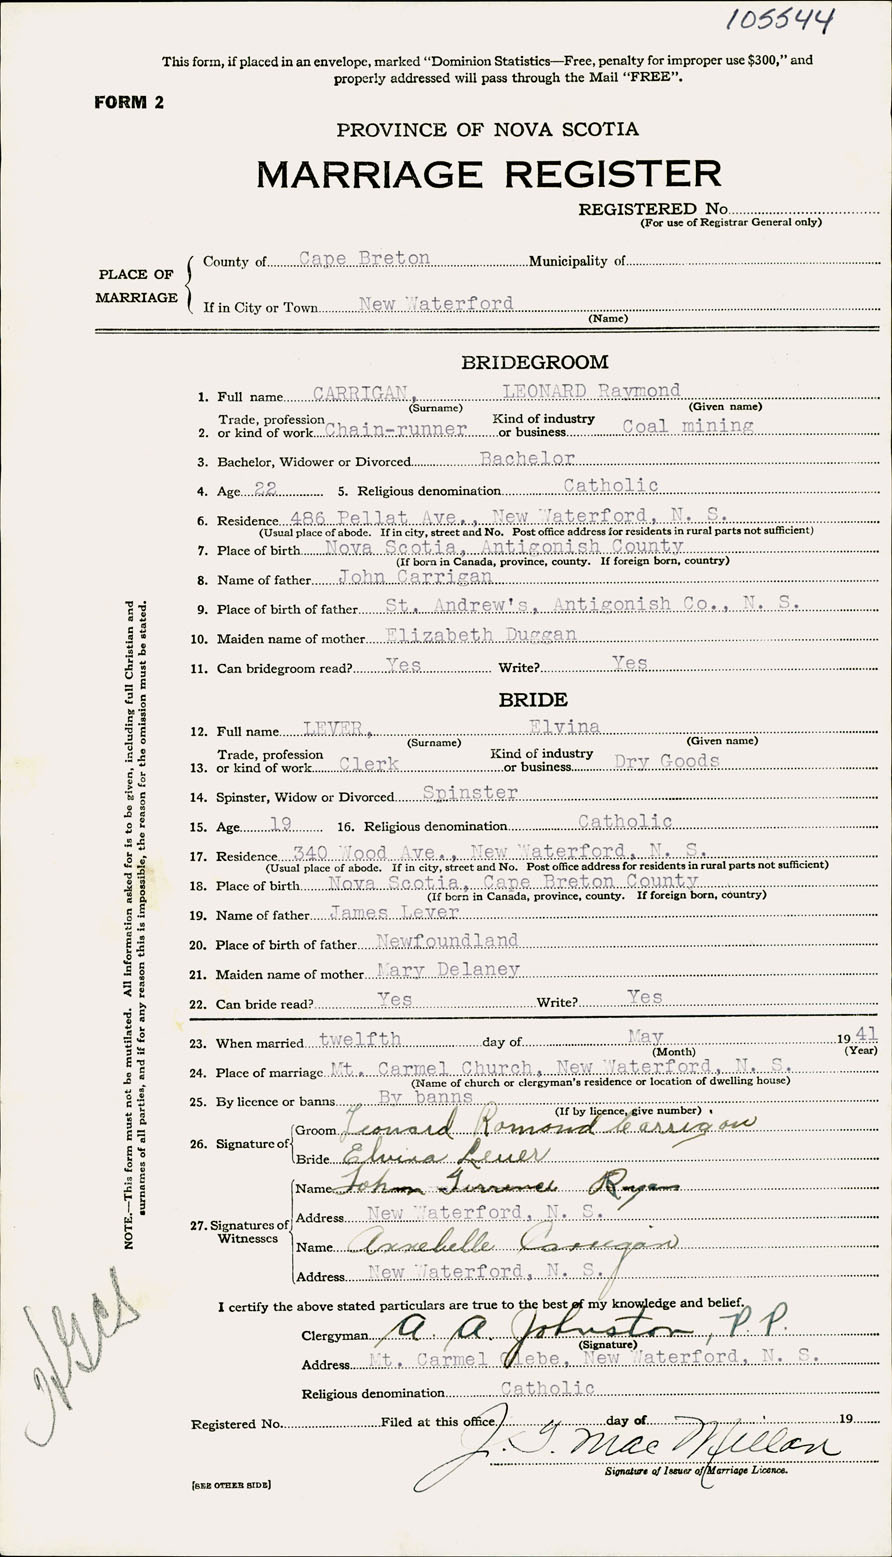 105544
This form, if placed in an envelope, marked “Dominion Statistics—Free, penalty for improper use $300,” and
properly addressed will pass through the Mail “FREE”.
FORM 2
PROVINCE OF NOVA SCOTIA
MARRIAGE REGISTER
REGISTERED No.
(For use of Registrar General only)
PLACE OF MARRIAGE
County of Cape Breton Municipality of
If in City or Town New Waterford
(Name)
BRIDEGROOM
1. Full name CARRIGAN, LEONARD Raymond
(Surname) (Given name)
Trade, profession Kind of industry
2. or kind of work Chain-runner or business Coal mining
3. Bachelor, Widower or Divorced Bachelor
4. Age 22 5. Religious denomination Catholic
6. Residence 486 Pellat Ave., New Waterford, N. S.
(Usual place of abode. If in city, street and No. Post office address for residents in rural parts not sufficient)
7. Place of birth Nova Scotia, Antigonish County
(If born in Canada, province, county. If foreign born, country)
8. Name of father John Carrigan
9. Place of birth of father St. Andrew's, Antigonish Co., N. S.
10. Maiden name of mother Elizabeth Duggan
11. Can bridegroom read? Yes Write? Yes
BRIDE
12. Full name LEVER, Elvina
(Surname) (Given name)
Trade, profession Kind of industry
13. or kind of work Clerk or business Dry Goods
14. Spinster, Widow or Divorced Spinster
15. Age 19 16. Religious denomination Catholic
17. Residence 340 Wood Ave., New Waterford, N. S.
(Usual place of abode. If in city, street and No. Post office address for residents in rural parts not sufficient)
18. Place of birth Nova Scotia, Cape Breton County
(If born in Canada, province, county. If foreign born, country)
19. Name of father James Lever
20. Place of birth of father Newfoundland
21. Maiden name of mother Mary Delaney
22. Can bride read? Yes Write? Yes
23. When married twelfth day of May 1941
(Month) (Year)
24. Place of marriage Mt. Carmel Church, New Waterford, N. S.
(Name of church or clergyman's residence or location of dwelling house)
25. By licence or banns By banns
(If by licence, give number)
26. Signature of
Groom Leonard Romond Carrigan
Bride Elvina Lever
27. Signatures of Witnesses
Name John Terrence Ryan
Address New Waterford, N. S.
Name Annebelle Carrigan
Address New Waterford, N. S.
I certify the above stated particulars are true to the best of my knowledge and belief.
Clergyman A. A. Johnston, P. P.
(Signature)
Address Mt. Carmel Glebe, New Waterford, N. S.
Religious denomination Catholic
Registered No. Filed at this office day of 19
J. G. Mac Millan
Signature of Issuer of Marriage Licence.
[SEE OTHER SIDE]
NOTE.—This form must not be mutilated. All information asked for is to be given, including full Christian and
surnames of all parties, and if for any reason this is impossible, the reason for the omission must be stated.